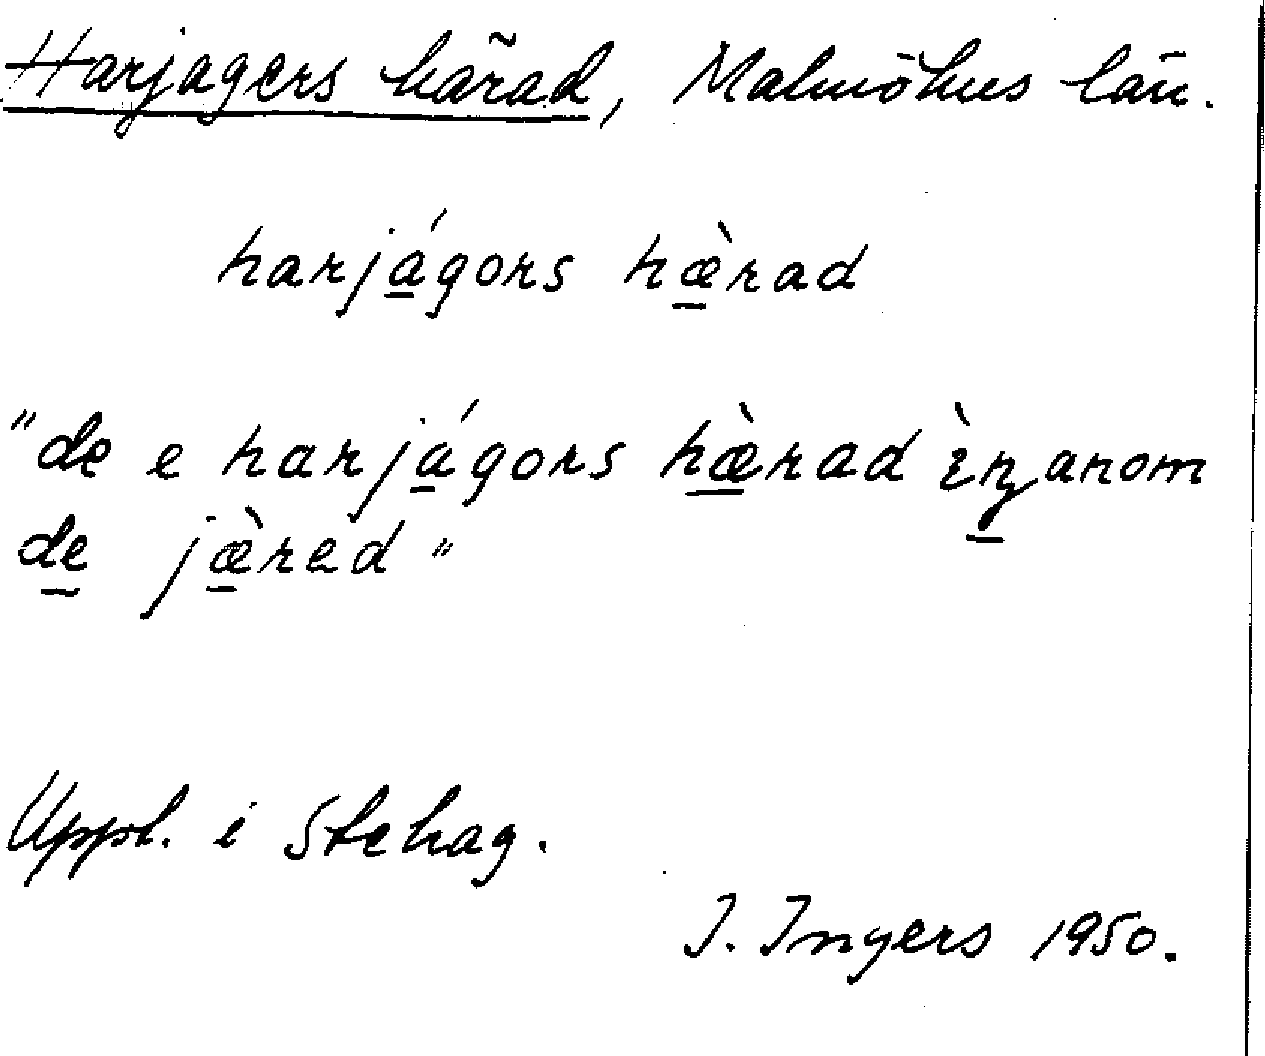 Harjagers härad, Malmöhus län.
harjá̱gors hæ̱̀rad
"de e harjá̱gors hæ̱̀rad ìn̠anom
de̱ jæ̱̀red"
Uppt. i Stehag.
I. Ingers 1950.